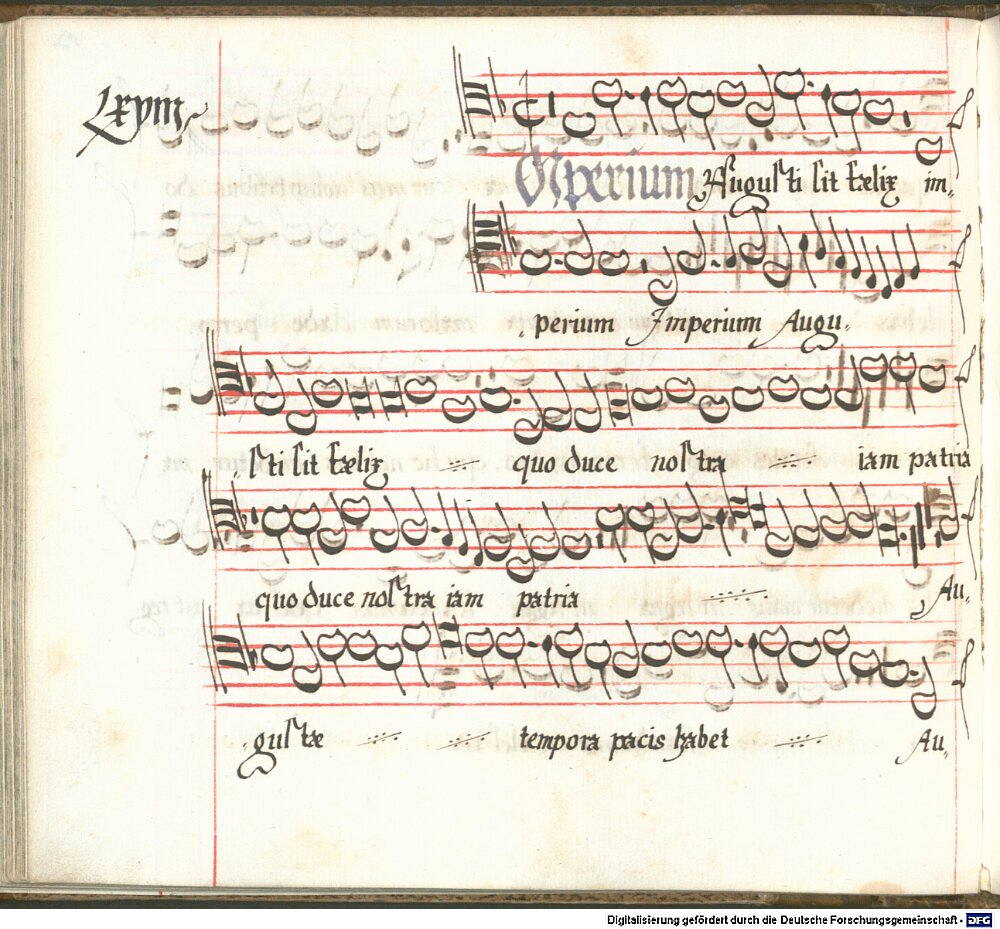 Lxvııı
Imperium Augusti sit fælix im-
perium Imperium Augu-
sti sit fælix quo duce nostra iam patria
quo duce nostra iam patria Au-
gustæ tempora pacis habet Au-
Digitalisierung gefördert durch die Deutsche Forschungsgemeinschaft - DFG